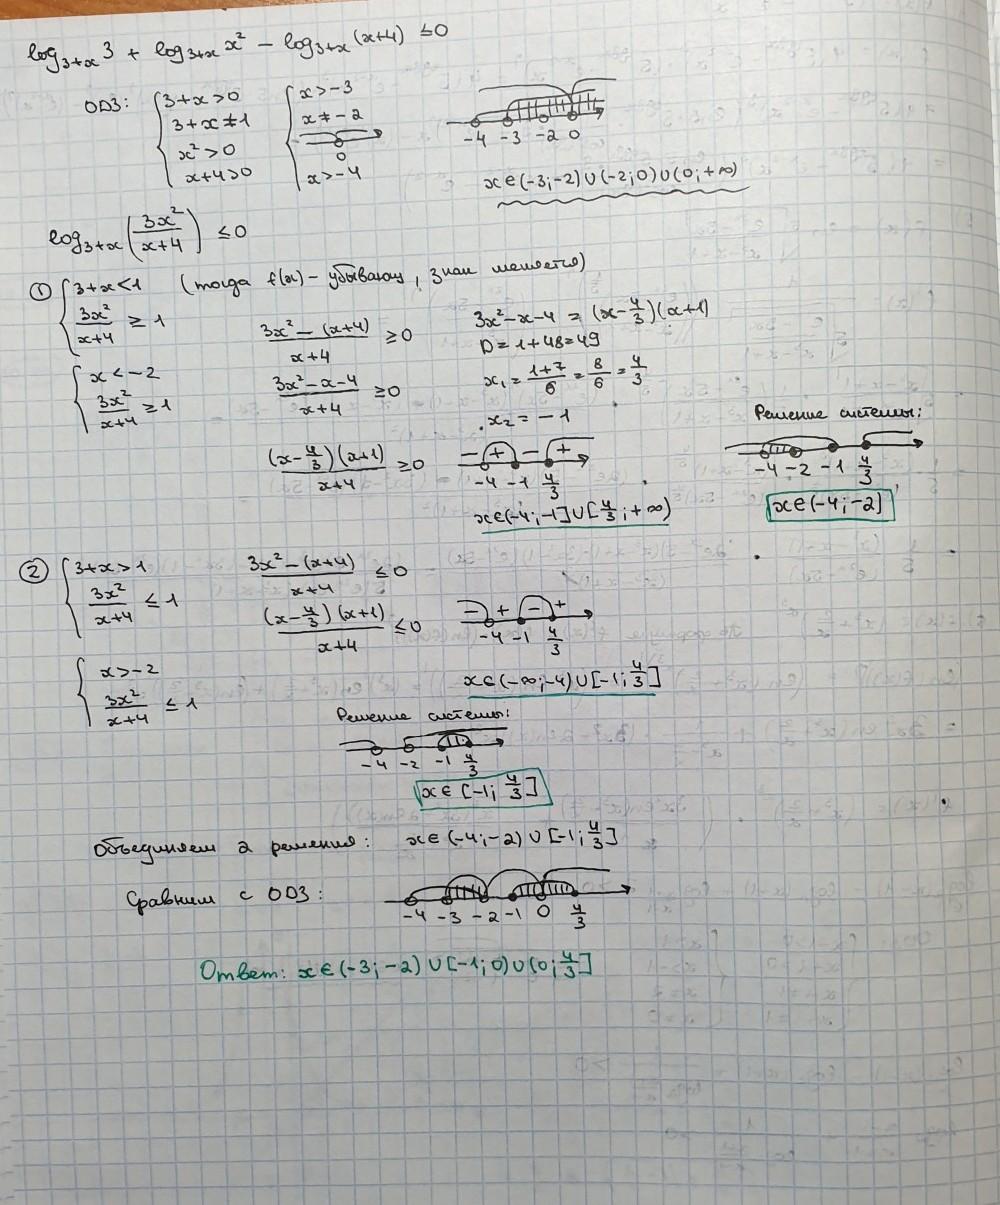 log₃₊ₓ 3 + log₃₊ₓ x² − log₃₊ₓ (x+4) ≤ 0
ОДЗ: { 3+x>0 { x>−3
3+x≠1 x≠−2
x²>0 0
x+4>0 x>−4
−4 −3 −2 0
x∈(−3;−2)∪(−2;0)∪(0;+∞)
log₃₊ₓ (3x²/(x+4)) ≤ 0
① { 3+x<1 (тогда f(x) – убывающ, знак меняется)
3x²/(x+4) ≥ 1
(3x² − (x+4))/(x+4) ≥ 0
3x²−x−4 = (x−4/3)(x+1)
D = 1+48=49
{ x<−2
3x²/(x+4) ≥ 1
(3x²−x−4)/(x+4) ≥ 0
x₁ = (1+7)/6 = 8/6 = 4/3
x₂ = −1
((x−4/3)(x+1))/(x+4) ≥ 0
− + − +
−4 −1 4/3
x∈(−4;−1]∪[4/3;+∞)
Решение системы:
−4 −2 −1 4/3
x∈(−4;−2)
② { 3+x>1
3x²/(x+4) ≤ 1
(3x²−(x+4))/(x+4) ≤ 0
((x−4/3)(x+1))/(x+4) ≤ 0
− + − +
−4 −1 4/3
{ x>−2
3x²/(x+4) ≤ 1
x∈(−∞;−4)∪[−1;4/3]
Решение системы:
−4 −2 −1 4/3
x∈[−1;4/3]
Объединяем 2 решения: x∈(−4;−2)∪[−1;4/3]
Сравним с ОДЗ:
−4 −3 −2 −1 0 4/3
Ответ: x∈(−3;−2)∪[−1;0)∪(0;4/3]